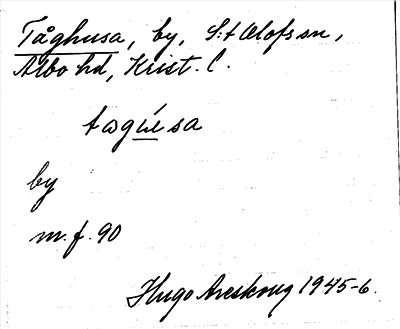 Tåghusa, by, S:t Olofs sn,
Albo hd, Krist. l.
by
m.f. 90
Hugo Areskoug 1945-6.